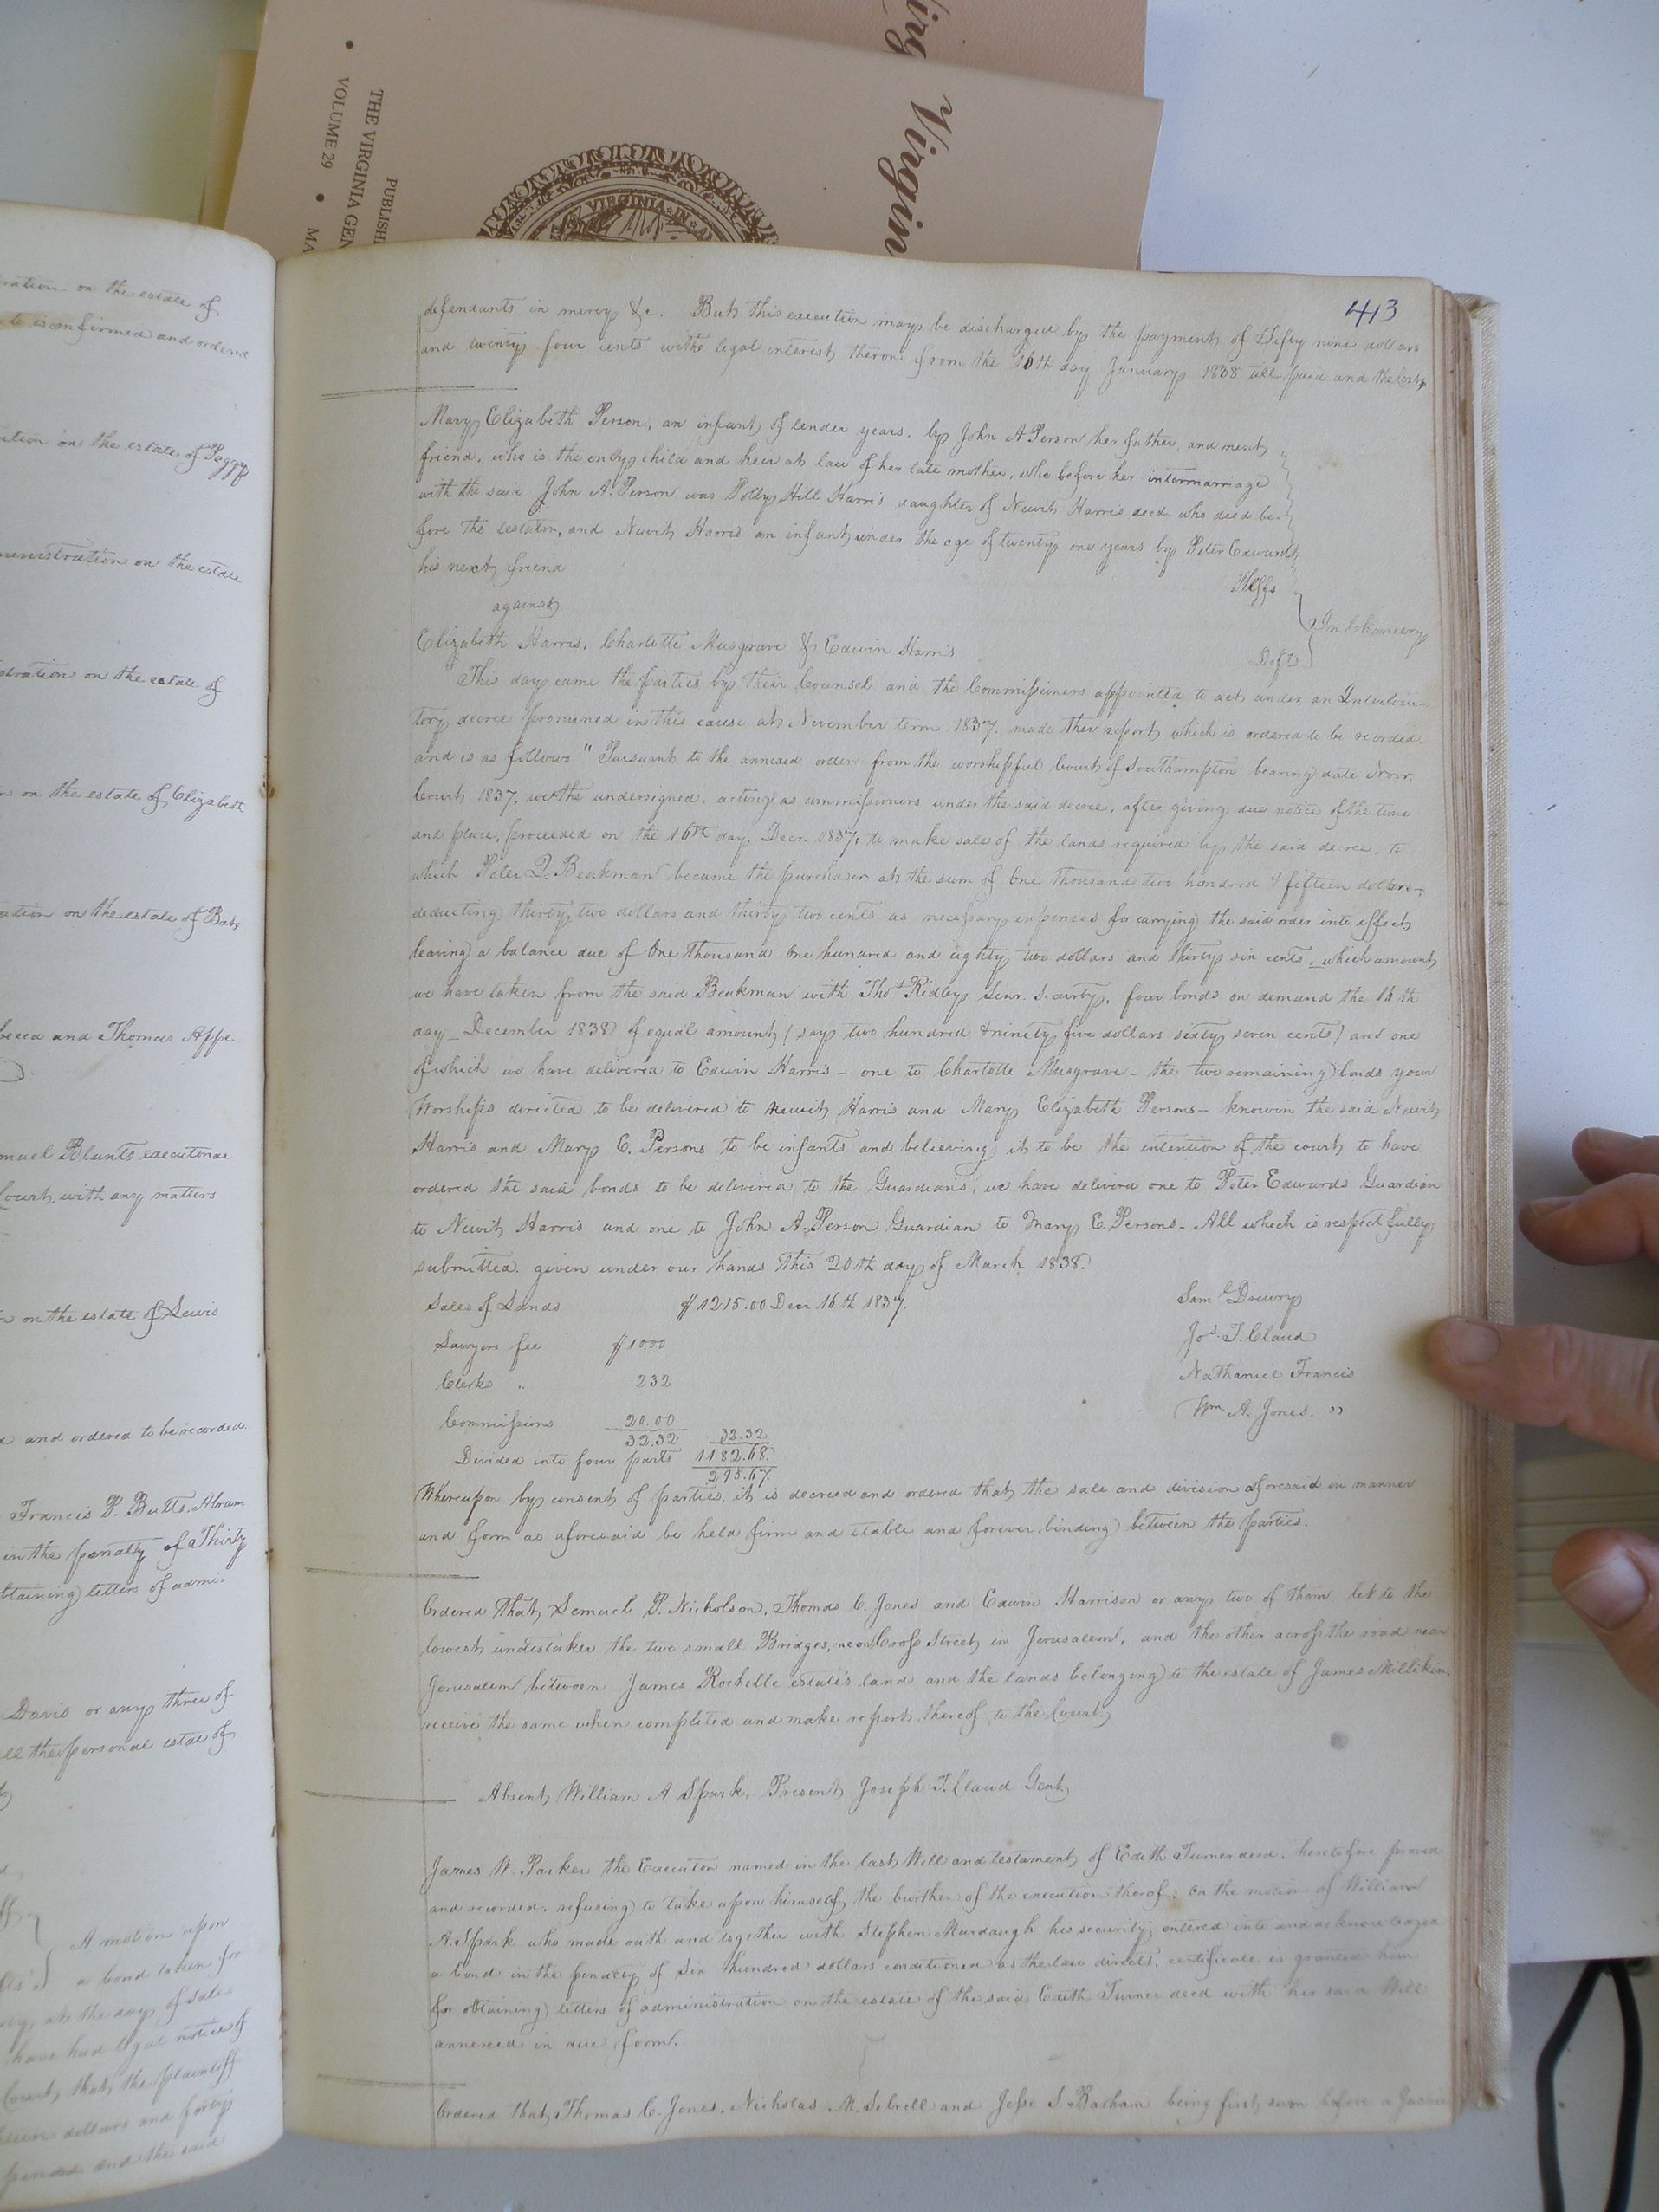 Virgin
PUBLISH
THE VIRGINIA GEN
VOLUME 29 • MA
VIRGINIA IN
ration on the estate of
is confirmed and ordered
on the estate of Peggy
ministration on the estate
stration on the estate of
on the estate of Elizabeth
ation on the estate of
becca and Thomas Appe-
muel Blunts executorae
Court with any matters
on the estate of Lewis
and ordered to be recorded
Francis P. Butts, Abram
in the penalty of Thirty
btaining letters of admi-
Davis or any three of
ll the personal estae of
A motion upon
a bond taken for
at the day of sale
have had legal notice of
Court, that the plaintiff
dollars and forty
and the said
413
defendants in mercy &c. But this execution may be discharged by the payment of Fifty nine dollars
and twenty four cents with legal interest theron from the 16th day January 1838 till paid and the Costs
Mary Elizabeth Person, an infant of tender years, by John A Person her father, and next
friend, who is the only child and heir at law of her late mother, who before her intermarriage
with the said John A. Person was Polly Hill Harris daughter of Newit Harris decd. who died be-
fore the testator, and Newit Harris an infant under the age of twenty one years by Peter Edwards
his next friend
Plffs
against
In Chancery
Elizabeth Harris, Charlotte Musgrave & Edwin Harris
Defts
This day came the parties by their Counsel and the Commissioners appointed to act under an Interlocu-
tory decree pronuned in this cause at November term 1837. made ther report which is ordered to be recorded.
and is as follows "Pursuant to the annexed order from the worshipful Court of Southampton bearing date Novr.
Court 1837, we the undersigned, acting as commissioners under the said decree, after giving due notice of the time
and place, proceeded on the 16th day Decr. 1837, to make sale of the lands required by the said decree, to
which Peter D. Beakman became the purchaser at the sum of One thousand two hundred & fifteen dollars-
deducting thirty two dollars and thirty two cents as necessary expences for carrying the said order into effect
leaving a balance due of One thousand One hundred and eighty two dollars and thirty six cents, which amount
we have taken from the said Beakman with Thos Ridley Senr. Security, four bonds on demand the 16th
day _ December 1838) of equal amount (say two hundred & ninety five dollars sixty seven cents) and one
of which we have delivered to Edwin Harris - one to Charlotte Musgrave - the two remaining bonds your
Worships directed to be delivered to Newit Harris and Mary Elizabeth Persons - knowin the said Newit
Harris and Mary E. Persons to be infants and believing it to be the intention of the court to have
ordered the said bonds to be delivered to the Guardians, we have deliverd one to Peter Edwards Guardian
to Newit Harris and one to John A. Person Guardian to Mary E. Persons - All which is respectfully
submitted. given under our hands this 20th day of March 1838.
Sales of Lands $1215.00 Decr 16th 1837.
Saml Drewry
Lawyers fee $10.00
Jos. T. Claud
Clerks " 2 32
Nathaniel Francis
Commissions 20.00
Wm A. Jones. "
32.32 32.32
Divided into four parts 1182.68.
295.67.
Whereupon by consent of parties, it is decreed and ordered that the sale and division aforesaid in manner
and form as aforesaid be held firm and stable and forever binding between the parties.
Ordered That Samuel P. Nicholson, Thomas C. Jones and Edwin Harrison or any two of them let to the
lowest undertaker the two small Bridges, one on Cross Street in Jerusalem, and the other across the road near
Jerusalem between James Rochelle estate's land and the lands belonging to the estate of James Milliken.
receive the same when completed and make report thereof to the Court.
Absent William A Spark, Present Joseph T. Claud Gent.
James W. Parker the Executor named in the last Will and testament of Edith Turner decd. heretofore proved
and recorded, refusing to take upon himself the burthen of the execution therof; On the motion of William
A. Spark who made oath and together with Stephen Murdaugh his security entered into and acknowledged
a bond in the penalty of Six hundred dollars conditioned as the law directs, certificate is granted him
for obtaining letters of administration on the estate of the said Edith Turner decd with her said Will
annexed in due form.
Ordered that Thomas C. Jones, Nicholas M. Sebrell and Jesse S. Barham being first sworn before a Justice